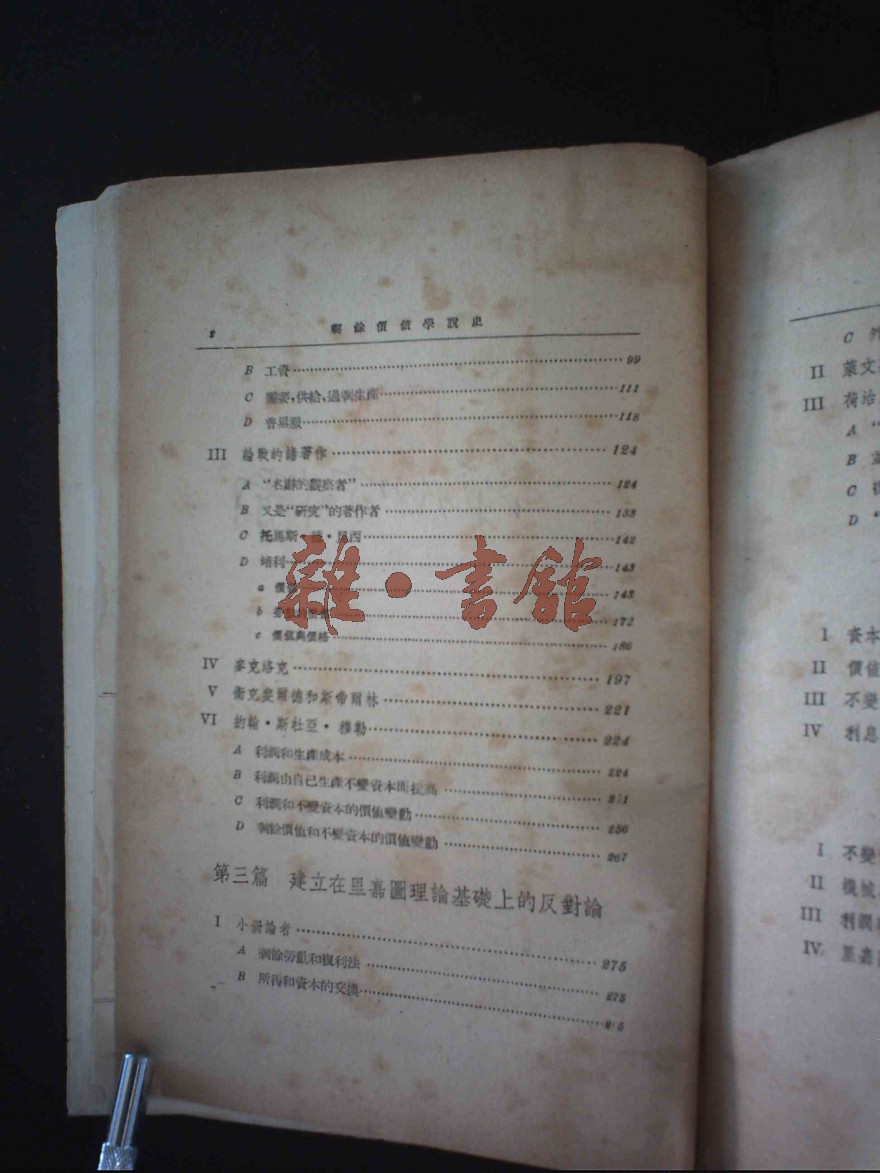 2 剩餘價值學說史
B 工資 99
C 需要,供給,過剩生產 111
D 普累服 118
III 論戰的諸著作 124
A “名辭的觀察者” 124
B 又是“研究”的著作者 135
C 托馬斯·德·昆西 142
D 培利 143
a 價值 143
b 勞動的價值 172
c 價值與價格 186
IV 麥克洛克 197
V 衛克斐爾德和斯帝爾林 221
VI 約翰·斯杜亞·穆勒 224
A 利潤和生產成本 224
B 利潤由自己生產不變資本而提高 251
C 利潤和不變資本的價值變動 256
D 剩餘價值和不變資本的價值變動 267
第三篇 建立在里嘉圖理論基礎上的反對論
I 小冊論者 275
A 剩餘勞動和複利法 275
B 所得和資本的交換
雜·書館
C
II 葉文
III 荷治
A “
B
C
D “
I 資本
II 價值
III 不變
IV 利息
I 不變
II 機械
III 利潤
IV 里嘉